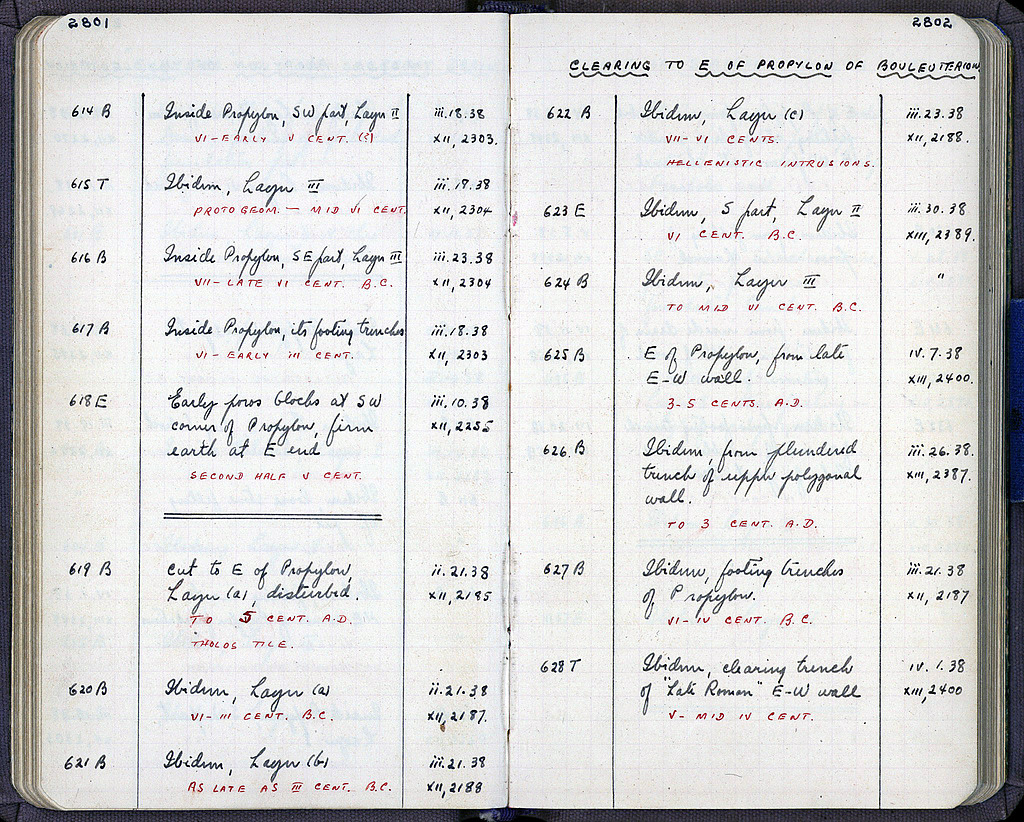 2801
614 B Inside Propylon, SW part, Layer II iii.18.38
VI-EARLY V CENT. (?) XII, 2303.
615 T Ibidem, Layer III iii.18.38
PROTOGEOM. — MID VI CENT. XII, 2304
616 B Inside Propylon, SE part, Layer III iii.23.38
VII-LATE VI CENT. B.C. XII, 2304
617 B Inside Propylon, its footing trenches iii.18.38
VI-EARLY III CENT. XII, 2303
618 E Early poros blocks at SW iii.10.38
corner of Propylon, firm XII, 2255
earth at E end
SECOND HALF V CENT.
619 B Cut to E of Propylon, ii.21.38
Layer (a), disturbed. XII, 2185
TO 5 CENT. A.D.
THOLOS TILE.
620 B Ibidem, Layer (a) ii.21.38
VI-III CENT. B.C. XII, 2187.
621 B Ibidem, Layer (b) iii.21.38
AS LATE AS III CENT. B.C. XII, 2188
2802
CLEARING TO E OF PROPYLON OF BOULEUTERION
622 B Ibidem, Layer (c) iii.23.38
VII-VI CENTS. XII, 2188.
HELLENISTIC INTRUSIONS.
623 E Ibidem, S part, Layer II iii.30.38
VI CENT. B.C. XIII, 2389.
624 B Ibidem, Layer III "
TO MID VI CENT. B.C.
625 B E of Propylon, from late IV.7.38
E-W wall XIII, 2400.
3-5 CENTS. A.D.
626 B Ibidem, from plundered iii.26.38.
trench of upper polygonal XIII, 2387.
wall.
TO 3 CENT. A.D.
627 B Ibidem, footing trenches iii.21.38
of Propylon. XII, 2187
VI-IV CENT. B.C.
628 T Ibidem, clearing trench IV.1.38
of "Late Roman" E-W wall XIII, 2400
V-MID IV CENT.